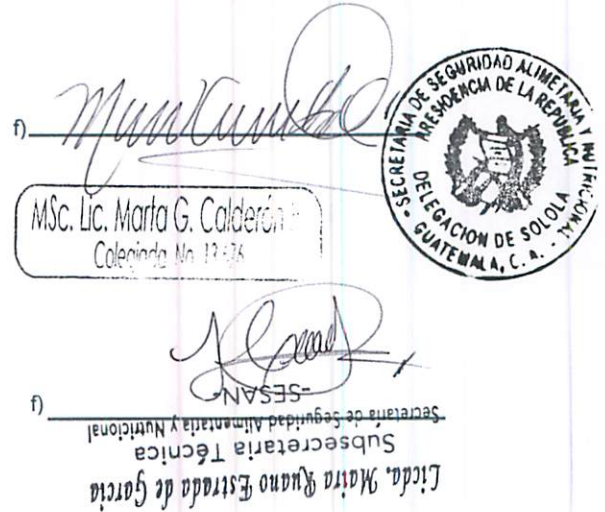 f)
MSc. Lic. Marta G. Calderón
Colegiada No.
SECRETARIA DE SEGURIDAD ALIMETARIA Y NUTRICIONAL
PRESIDENCIA DE LA REPUBLICA
DELEGACION DE SOLOLA
GUATEMALA, C. A.
f)
Licda. Maira Ruano Estrada de García
Subsecretaria Técnica
Secretaría de Seguridad Alimentaria y Nutricional
-SESAN-